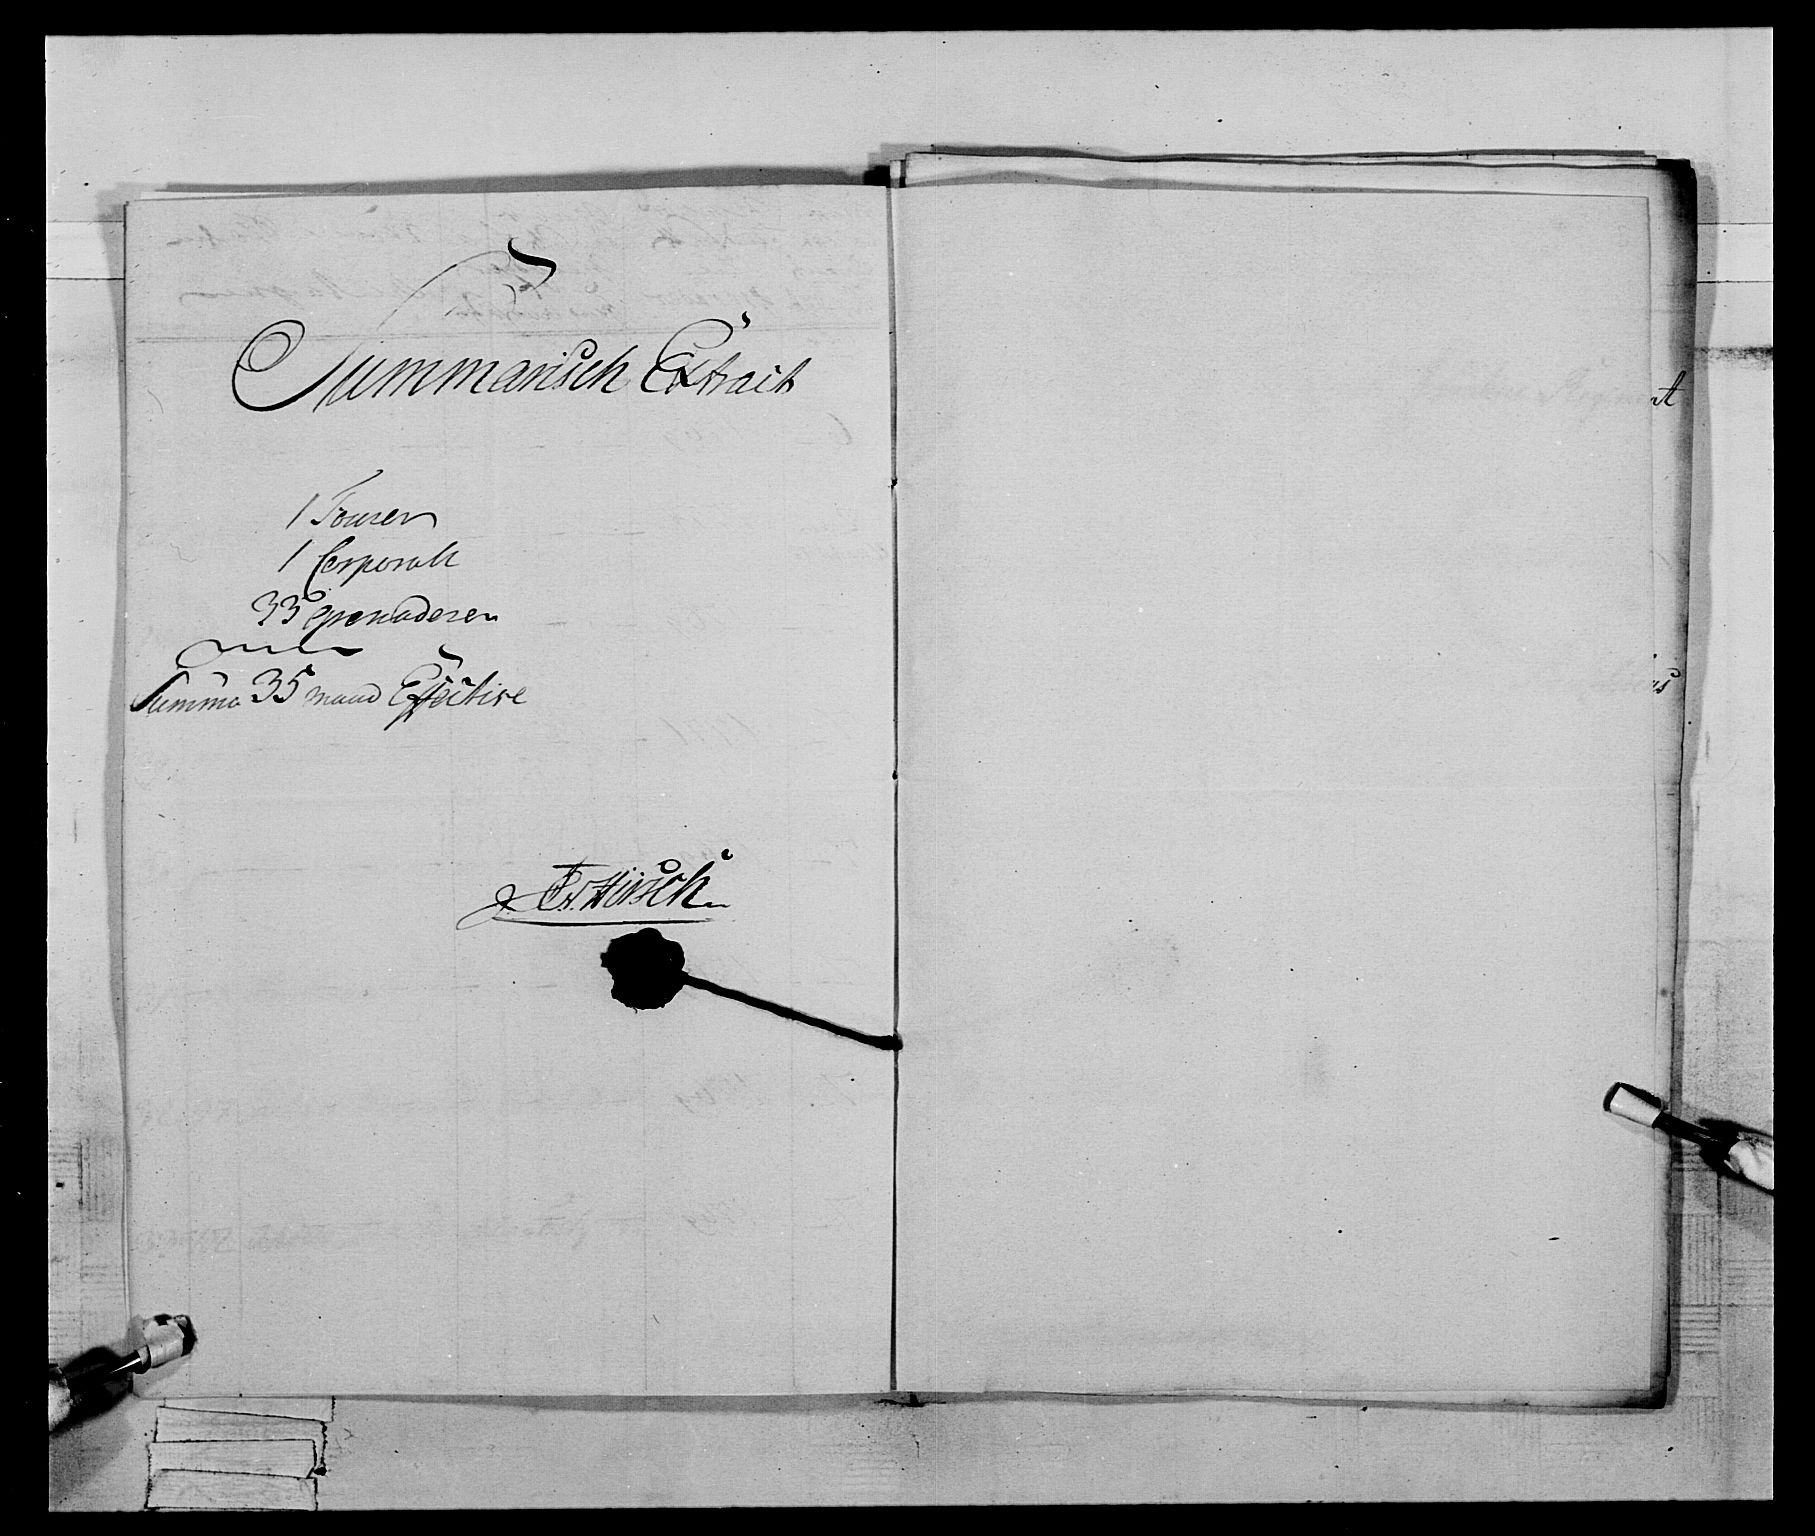 Summarisch Extract
1 Fourer
1 Corporals
33 grenaderer
Summa 35 mand Effective
v. Hirsch